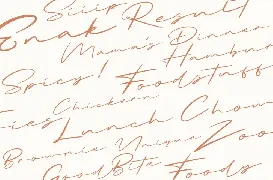 Siip
Enak Result
Mama's Dinner
Spicy! Hambur
Foodstuff
Chickenri
ries Lunch Chow
Brownie Unique Zoo
GoodBite Foods